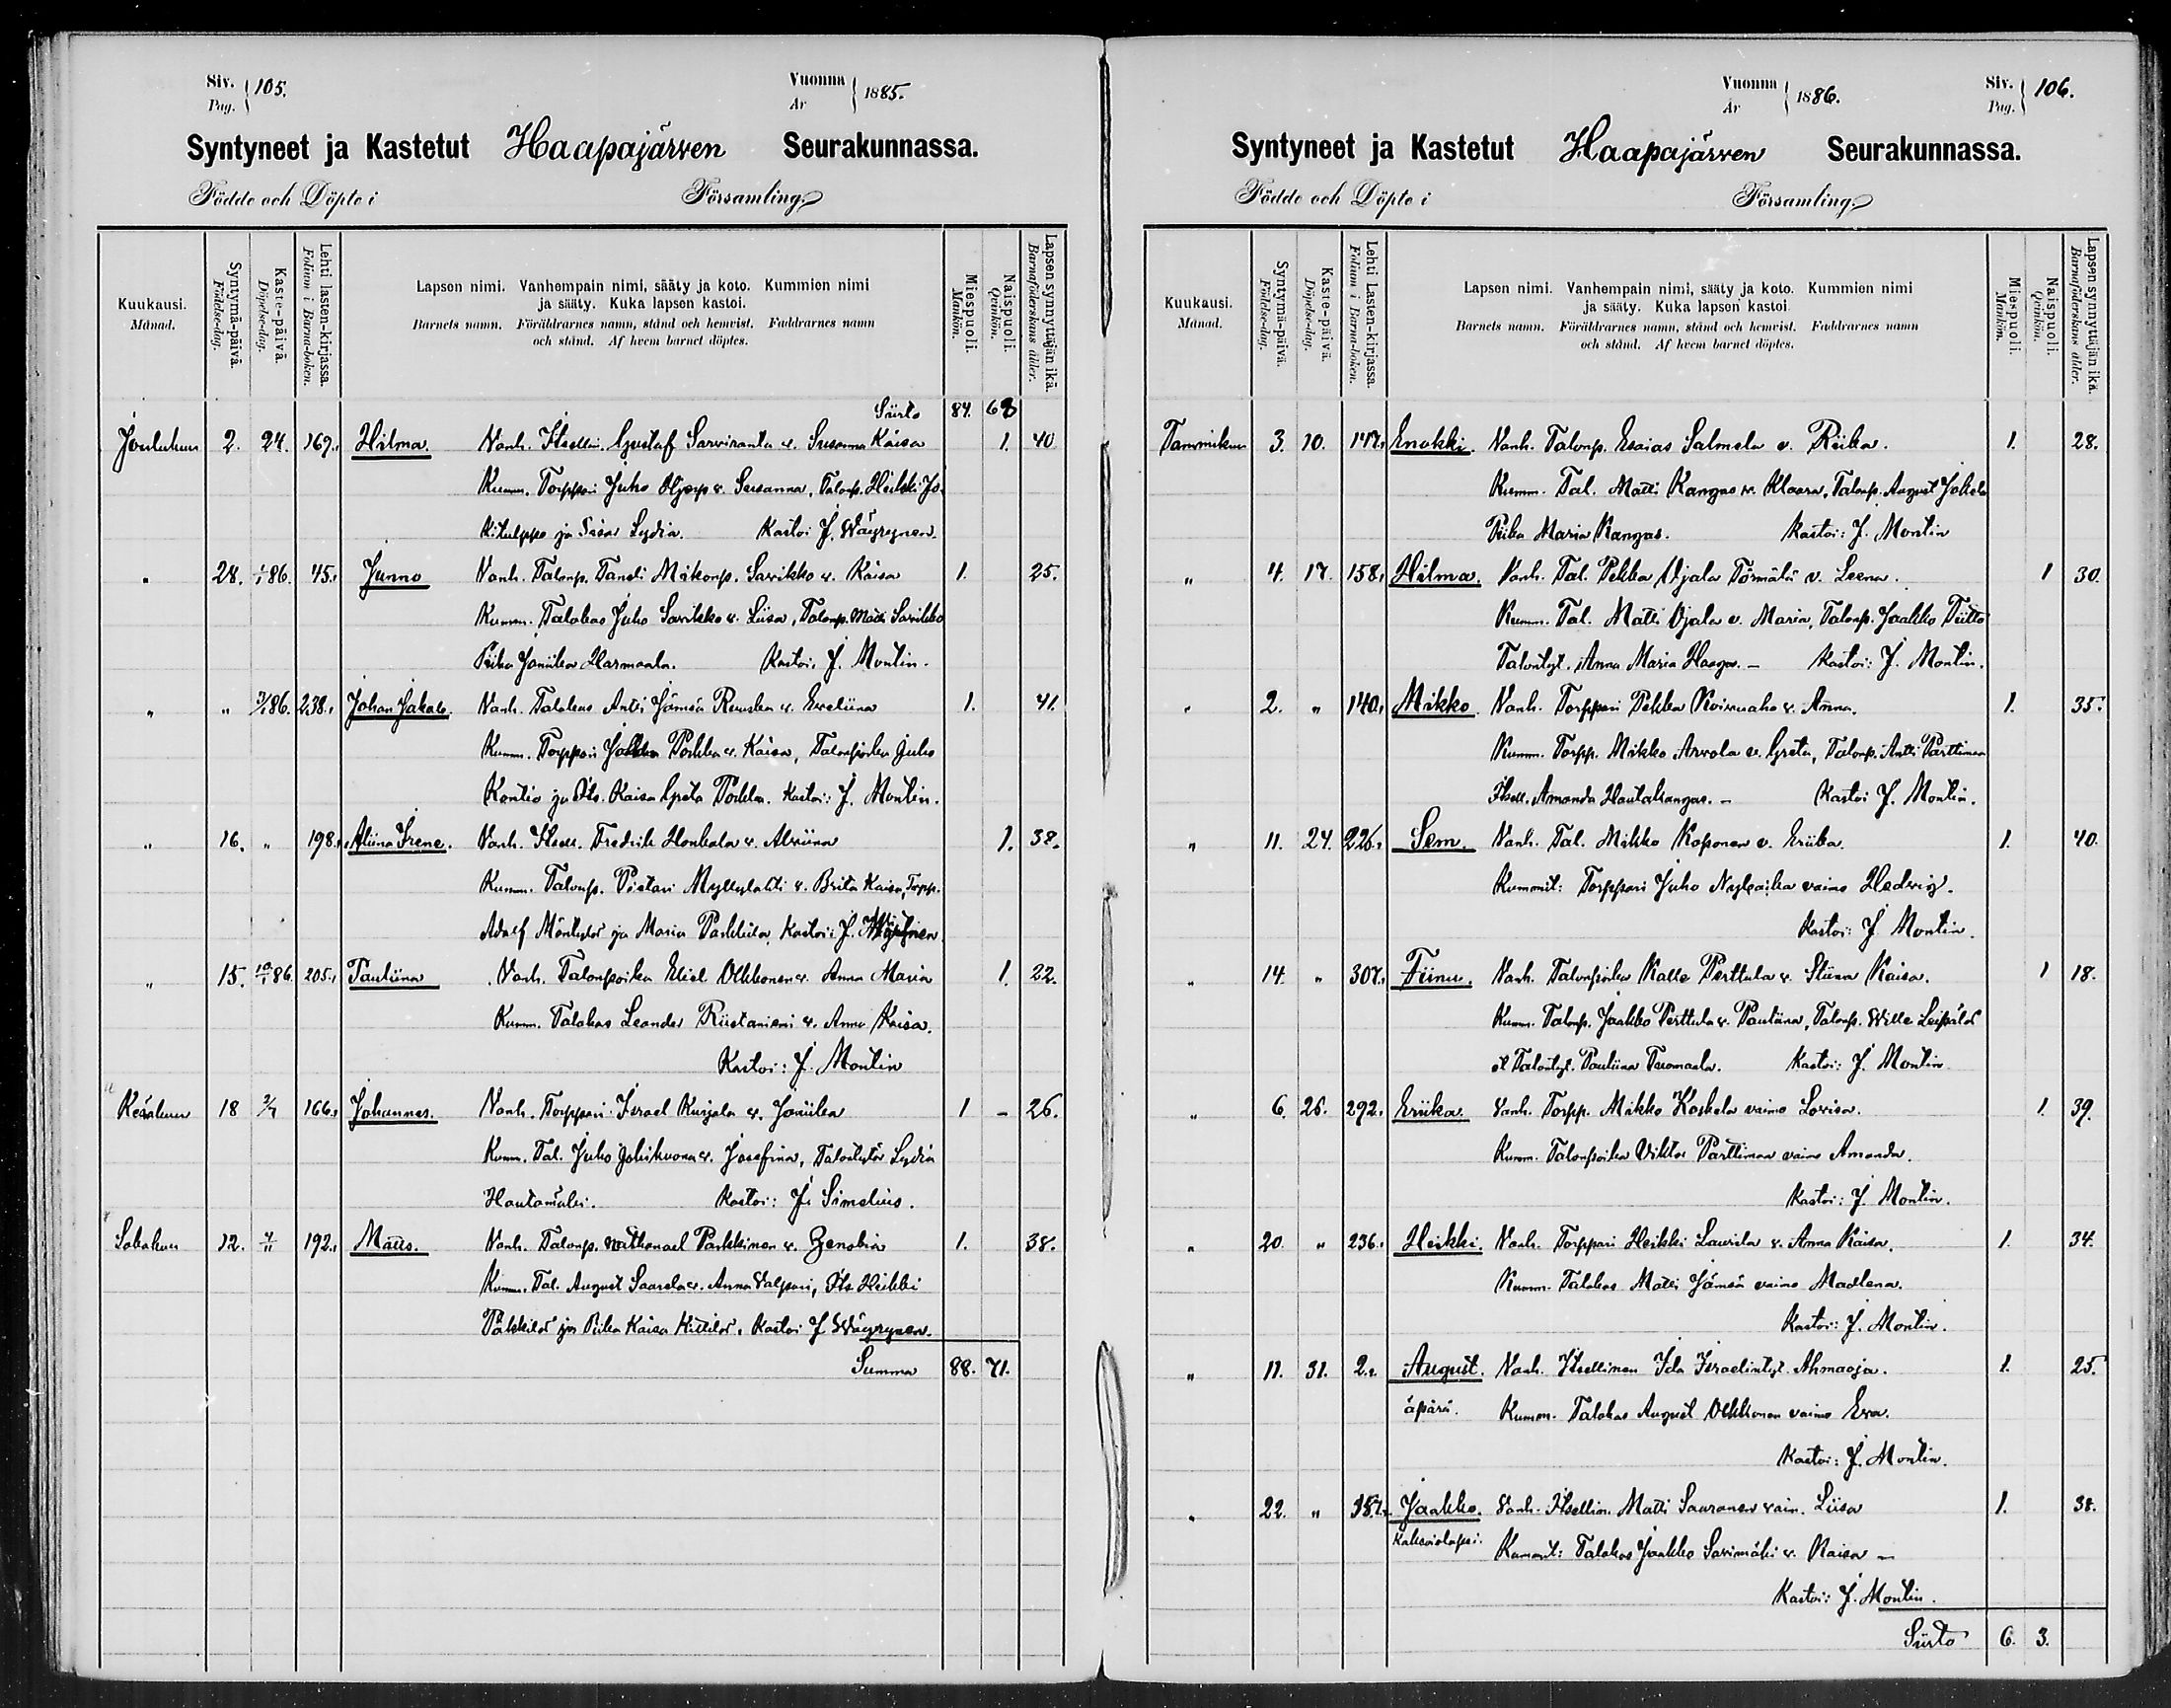 Siv. Pag. 105.
Vuonna År 1885.
Syntyneet ja Kastetut Haapajärven Seurakunnassa.
Födde och Döpte i Församling.
Kuukausi. Månad.
Syntymä-päivä. Födelse-dag.
Kaste-päivä. Döpelse-dag.
Lehti lasten-kirjassa. Folium i Barna-boken.
Lapsen nimi. Vanhempain nimi, sääty ja koto. Kummien nimi
ja sääty. Kuka lapsen kastoi.
Barnets namn. Föräldrarnes namn, stånd och hemvist. Faddrarnes namn
och stånd. Af hvem barnet döptes.
Miespuoli. Mankön.
Naispuoli. Qvinkön.
Lapsen synnyttäjän ikä. Barnaföderskans ålder.
Siirto 84. 68
Joulukuu 2. 24. 169. Hilma. Vanh. Itsellin. Gustaf Sarviranta v. Susanna Kaisa 1. 40
Kumm. Torppari Juho v. Susanna, Talonp. Heikki
ja Lydia. Kastoi J. Wäyrynen.
" 28. 1/1 86. 45. Junno Vanh. Talonp. Taneli Mikonp. Sarikko v. Kaisa 1. 25.
Kumm. Talokas Juho Savikko v. Liisa, Talonp. Matti Savikko
Piika Harmaala. Kastoi. J. Montin.
" " 3/1 86. 238. Johan Jakob. Vanh. Talokas Antti Jämsä v. Eveliina 1. 41.
Kumm. Torppari v. Kaisa, Talonpoika Juho
Kontio ja Its. Kaisa Greta. Kastoi: J. Montin.
" 16. " 198. Aliina Irene. Vanh. Itsell. Fredrik Honkala v. Alviina 1. 38.
Kumm. Talonp. Pietari Myllylahti v. Brita Kaisa, Torpp.
Adolf ja Maria Parkkila, Kastoi: J.
" 15. 10/1 86. 205. Pauliina Vanh. Talonpoika Eliel Olkkonen v. Anna Maria 1. 22.
Kumm. Talokas Leander Ristaniemi v. Anna Kaisa.
Kastoi: J. Montin
Kesäkuu 18 166. Johannes. Vanh. Torppari Israel Kurjala v. 1 - 26.
Kumm. Tal. Juho v. Josefina, Talontytär Lydia
Hautamäki. Kastoi: J. Simelius.
Lokakuu 12. 4/11 192. Matts. Vanh. Talonp. Nathanael Parkkinen v. Zenobia 1. 38.
Kumm. Tal. August Saarela v. Anna Valpuri, Its Heikki
ja Piika Kaisa. Kastoi J Wäyrynen.
Summa 88. 71.
Vuonna År 1886.
Siv. Pag. 106.
Syntyneet ja Kastetut Haapajärven Seurakunnassa.
Födde och Döpte i Församling.
Kuukausi. Månad.
Syntymä-päivä. Födelse-dag.
Kaste-päivä. Döpelse-dag.
Lehti Lasten-kirjassa. Folium i Barna-boken.
Lapsen nimi. Vanhempain nimi, sääty ja koto. Kummien nimi
ja sääty. Kuka lapsen kastoi.
Barnets namn. Föräldrarnes namn, stånd och hemvist. Faddrarnes namn
och stånd. Af hvem barnet döptes.
Miespuoli. Mankön.
Naispuoli. Qvinkön.
Lapsen synnyttäjän ikä. Barnaföderskans ålder.
Tammikuu 3. 10. 147. Enokki. Vanh. Talonp. Esaias Salmela v. Riika. 1. 28.
Kumm. Tal. Matti Kangas v. Klaara, Talonp. August Jokela
Piika Maria Kangas. Kastoi: J. Montin
" 4. 17. 158. Hilma. Vanh. Tal. Pekka Ojala Törmälä v. Leena. 1 30.
Kumm. Tal. Matti Ojala v. Maria, Talonp. Jaakko Tiitto
Talontyt. Anna Maria Haaga. — Kastoi: J. Montin.
" 2. " 140. Mikko. Vanh. Torppari Pekka Koivuaho v. Anna. 1. 35.
Kumm. Torpp. Mikko Arvola v. Greta, Talonp. Antti Parttimaa
Itsell. Amanda Hautakangas. — Kastoi J. Montin.
" 11. 24. 226. Sem. Vanh. Tal. Mikko Koponen v. Eriika. 1. 40.
Kummit: Torppari Juho vaimo Hedvig.
Kastoi: J. Montin.
" 14. " 307. Fiinu. Vanh. Talonpoika Kalle Perttula v. Stiina Kaisa. 1 18.
Kumm. Talonp. Jaakko Perttula v. Pauliina, Talonp. Wille Leipälä
Talontyt. Pauliina Tuomaala. Kastoi: J. Montin
" 6. 26. 292. Eriika. Vanh. Torpp. Mikko Koskela vaimo Lovisa. 1. 39.
Kumm. Talonpoika Viktor Parttimaa vaimo Amanda.
Kastoi: J. Montin.
" 20. " 236. Heikki. Vanh. Torppari Heikki Laurila v. Anna Kaisa. 1. 34.
Kumm. Talokas Matti Jämsä vaimo Madlena.
Kastoi: J. Montin.
" 11. 31. 2. August. Vanh. Itsellinen Ida Israelintyt. Ahmaoja. 1. 25.
äpärä. Kumm. Talokas August Olkkonen vaimo Eva.
Kastoi: J. Montin.
" 22. " 357. Jaakko. Vanh. Itsellin. Matti Sauranen vaim. Liisa 1. 38.
Kaksoislapsi. Kummit: Talokas Jaakko Savimäki v. Kaisa —
Kastoi: J. Montin.
Siirto 6. 3.